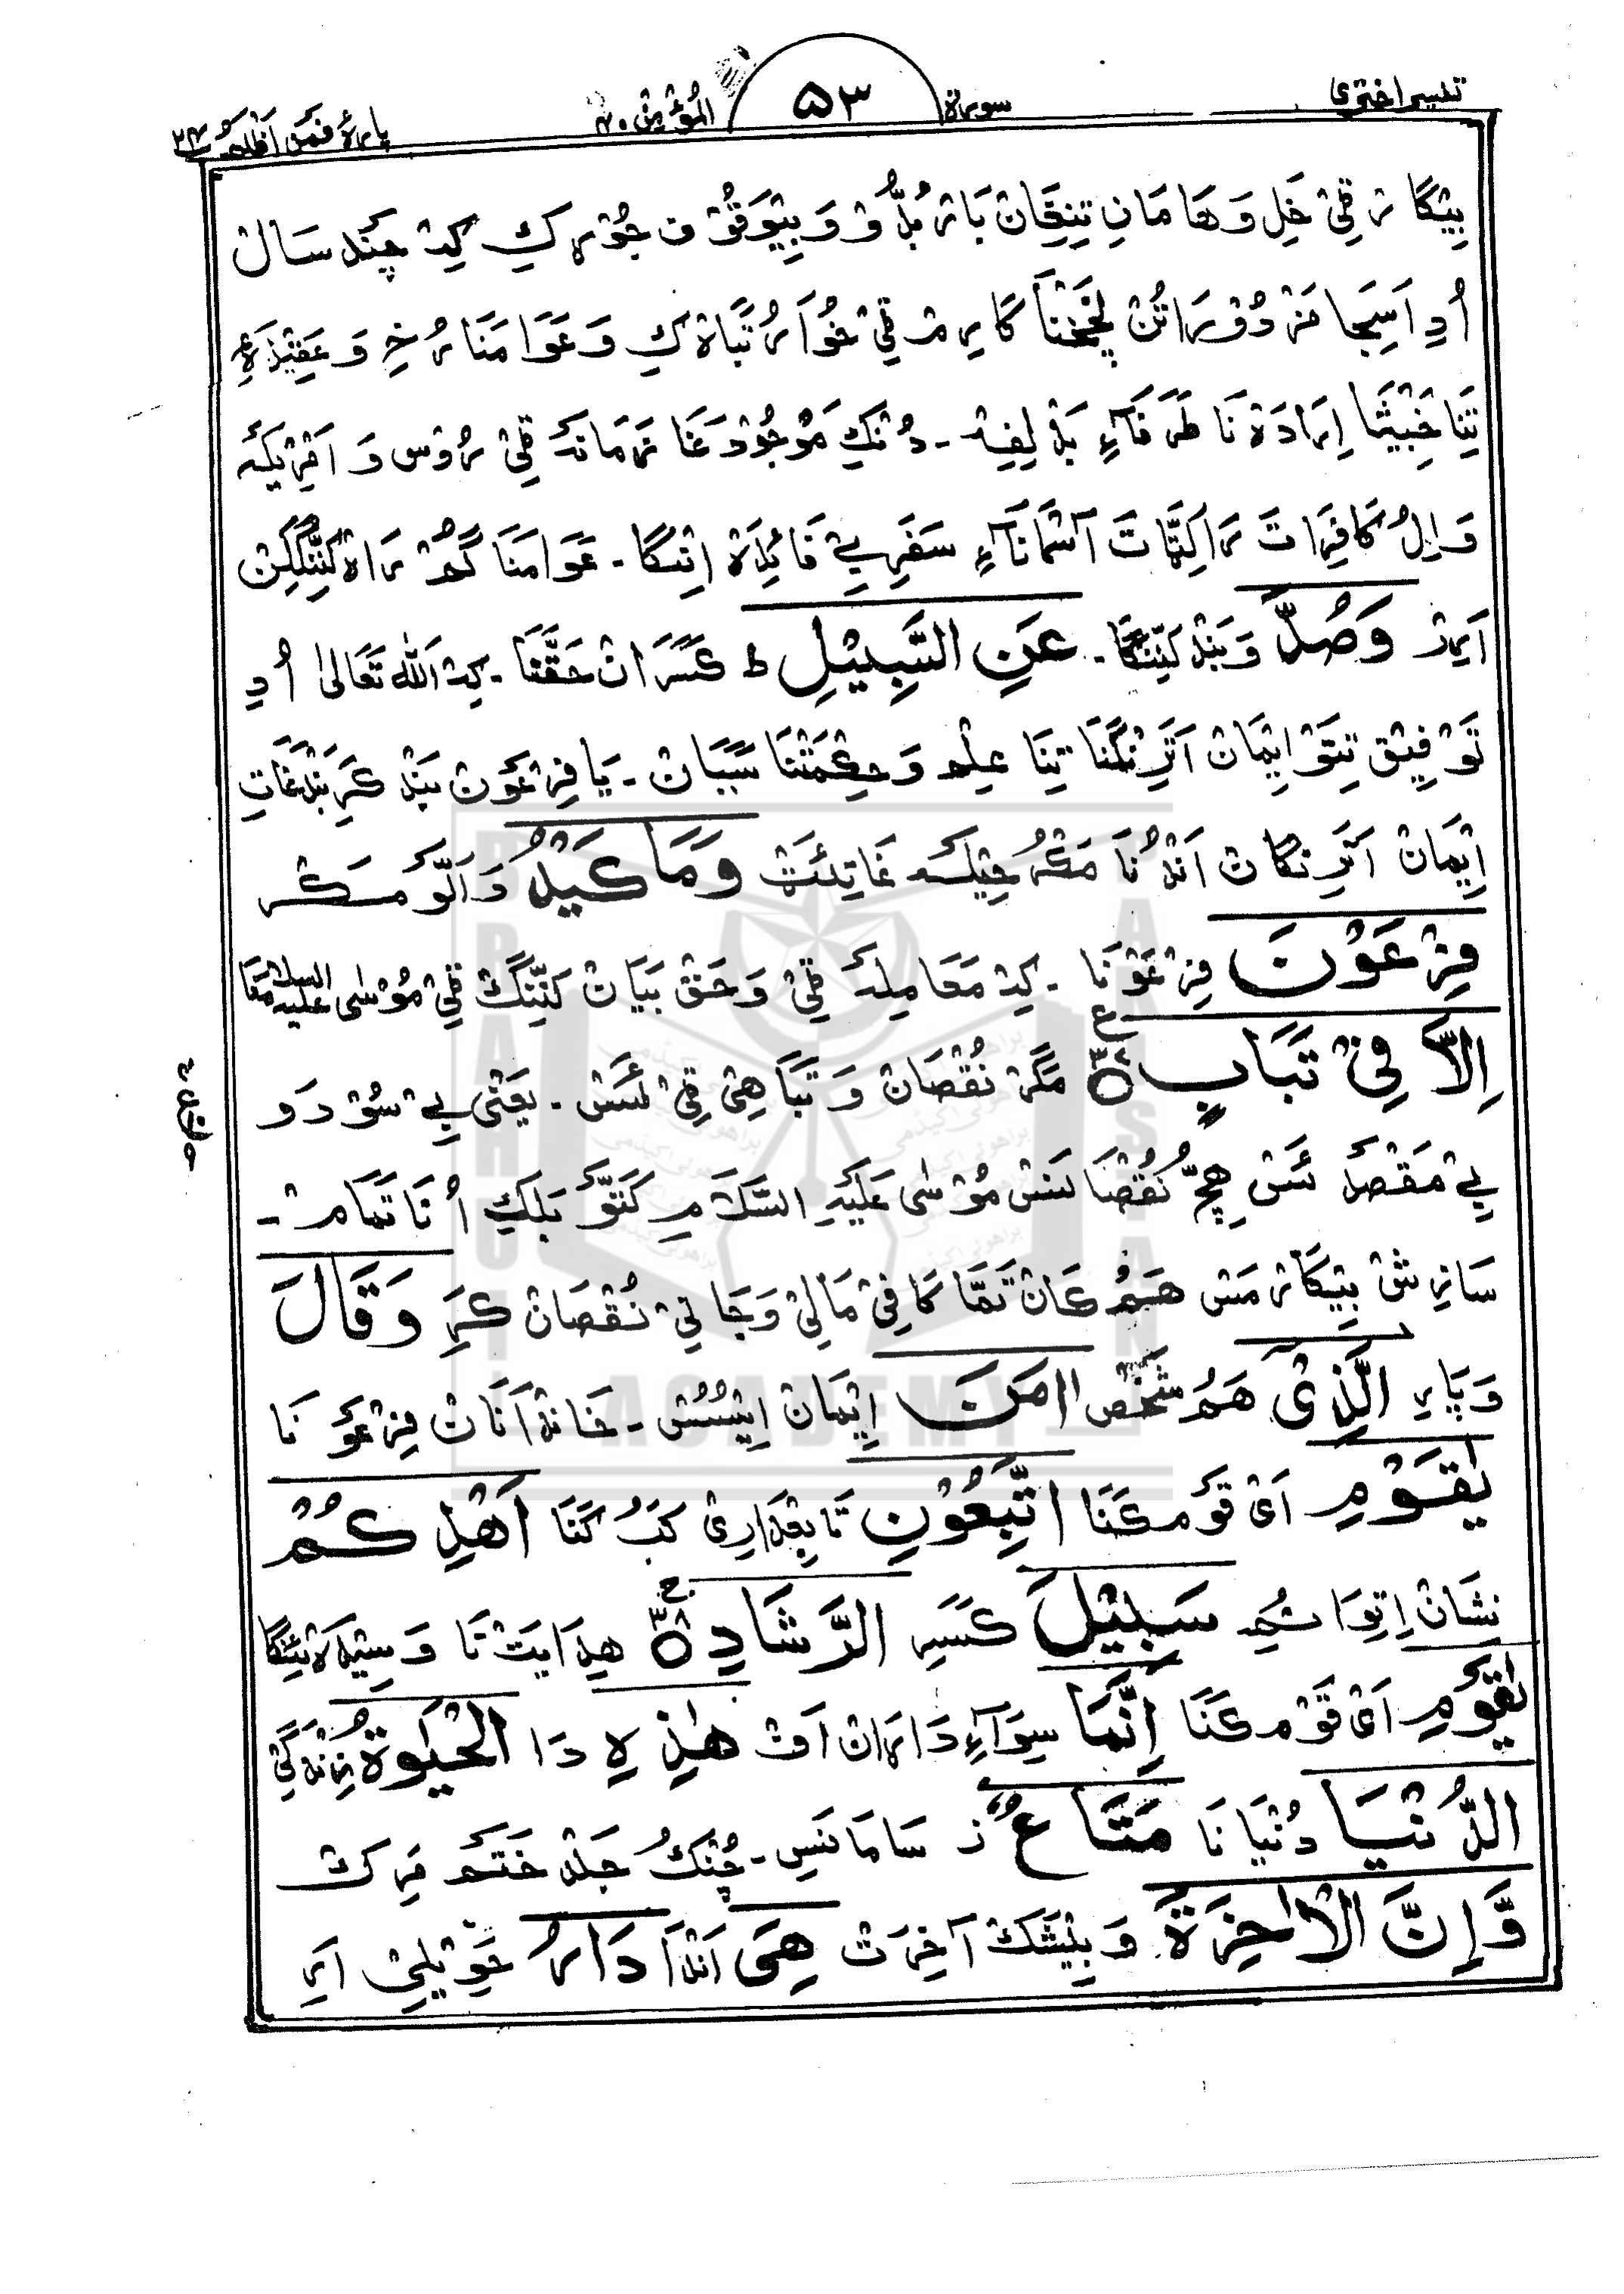 تفسیر اختری سورة ۵۳ المؤمن ۴۰ پارۂ فمن اظلم ۲۴
بِیْکَار ٹِیْ خَلِ وَ هَامَانِ تِنِقَان بَاز بُلُّ وْ وَ بِیْوَقُوْف جُوْڑ کِ کِہ چَنْد سَال
اُدِ اَسِ جَا مَزْدُوْرَاتَنْ خَچَّنَا کَارِیم ٹِیْ خُوَار و تَبَاہ کِ وَ عَوَامَنَا رُخِ وَ عَقِیْدَہِ
تِنَا خَبِیْثَا اِرَادَہ نَا طَرَفَآءِ بَدْلِفِہ ۔ دُنْکِ مَوْجُوْدَغَا زَمَانَہ ٹِیْ رُوْس وَ اَمْرِیْکَہ
وَالُ کَافِرَاتَ رَاکِٹَّاتَ آسْمَانَآءِ سَفَرِ بِے فَائِدَہ اِتِنْگَا ۔ عَوَامَنَا گُمْ رَاہ کَنِّنْگِنْ
اَیْر وَصُدَّ وَ بَنْد کَنِّنْگَا ۔ عَنِ السَّبِیْلِ ط کَسَرَان حَقَّنَا ۔ کِہ اَللّٰہ تَعَالیٰ اُدِ
تَوْفِیْق تِتَوْ اِیْمَان اَتَرِنْگَنَا تِنَا عِلْم وَ حِکْمَتْنَا سَبَبَان ۔ یَا فِرْعَوْن بَنْد کَرِ بَنْدَغَاتِ
اِیْمَان اَتَرِنْگَان اَنْدُنَا مَکْر حِیْلَہ غَاتِئَتْ وَمَا کَیْدُ وَ اَلَّوْ مَکْر
فِرْعَوْنَ فِرْعَوْنَا ۔ کِہ مَعَامِلَہ ٹِیْ وَ حَقّ بَیَان کَنِّنْگ ٹِیْ مُوْسٰی علیہ السلامنَا
اِلَّا فِیْ تَبَابٍ ۝۳۷ ع مَگَر نُقْصَان وَ تَبَاهِیْ ٹِیْ ئَسْ ۔ یَعْنِیْ بِے سُوْد وَ
بِے مَقْصَد ئَسْ هِچُّ نُقْصَانَسْ مُوْسٰی عَلَیْہِ السَّلَامِ کَتَوَّ بَلْکِ اُنَا تَمَام ۔
سَازِش بِیْکَار مَس هَمُ کَان تَمَّا کَافِیْ مَالِیْ وَ جَانِیْ نُقْصَان کَرِ وَقَالَ
وَ پَارِ الَّذِیْ هَمُ شَخْص اٰمَنَ اِیْمَان اِیْسُسْ ۔ خَانْدَانَان فِرْعَوْنَا
یٰقَوْمِ اَیْ قَوْم کَنَا اتَّبِعُوْنِ تَابِعْدَارِیْ کَبُ کَنَا اَهْدِکُمْ
نِشَان اِتِوَا نُمِ سَبِیْلَ کَسَرِ الرَّشَادِ ۝۳۸ ج هِدَایَتْ نَا وَ سِیْدَہ ئِنْگَا
یٰقَوْمِ اَیْ قَوْم کَنَا اِنَّمَا سِوَآءِ دَارَان اَفْ هٰذِہِ دَا الْحَیٰوةُ زِنْدَگِیْ
الدُّنْیَا دُنْیَا نَا مَتَاعٌ ز سَامَانَسِ ۔ چُنْکُ جَلْد خَتَم مَرِک
وَّاِنَّ الْاٰخِرَةَ وَ بِیْشَک آخِرَت هِیَ اَنْدَا دَارُ حَوِیْلِیْ اَرِ